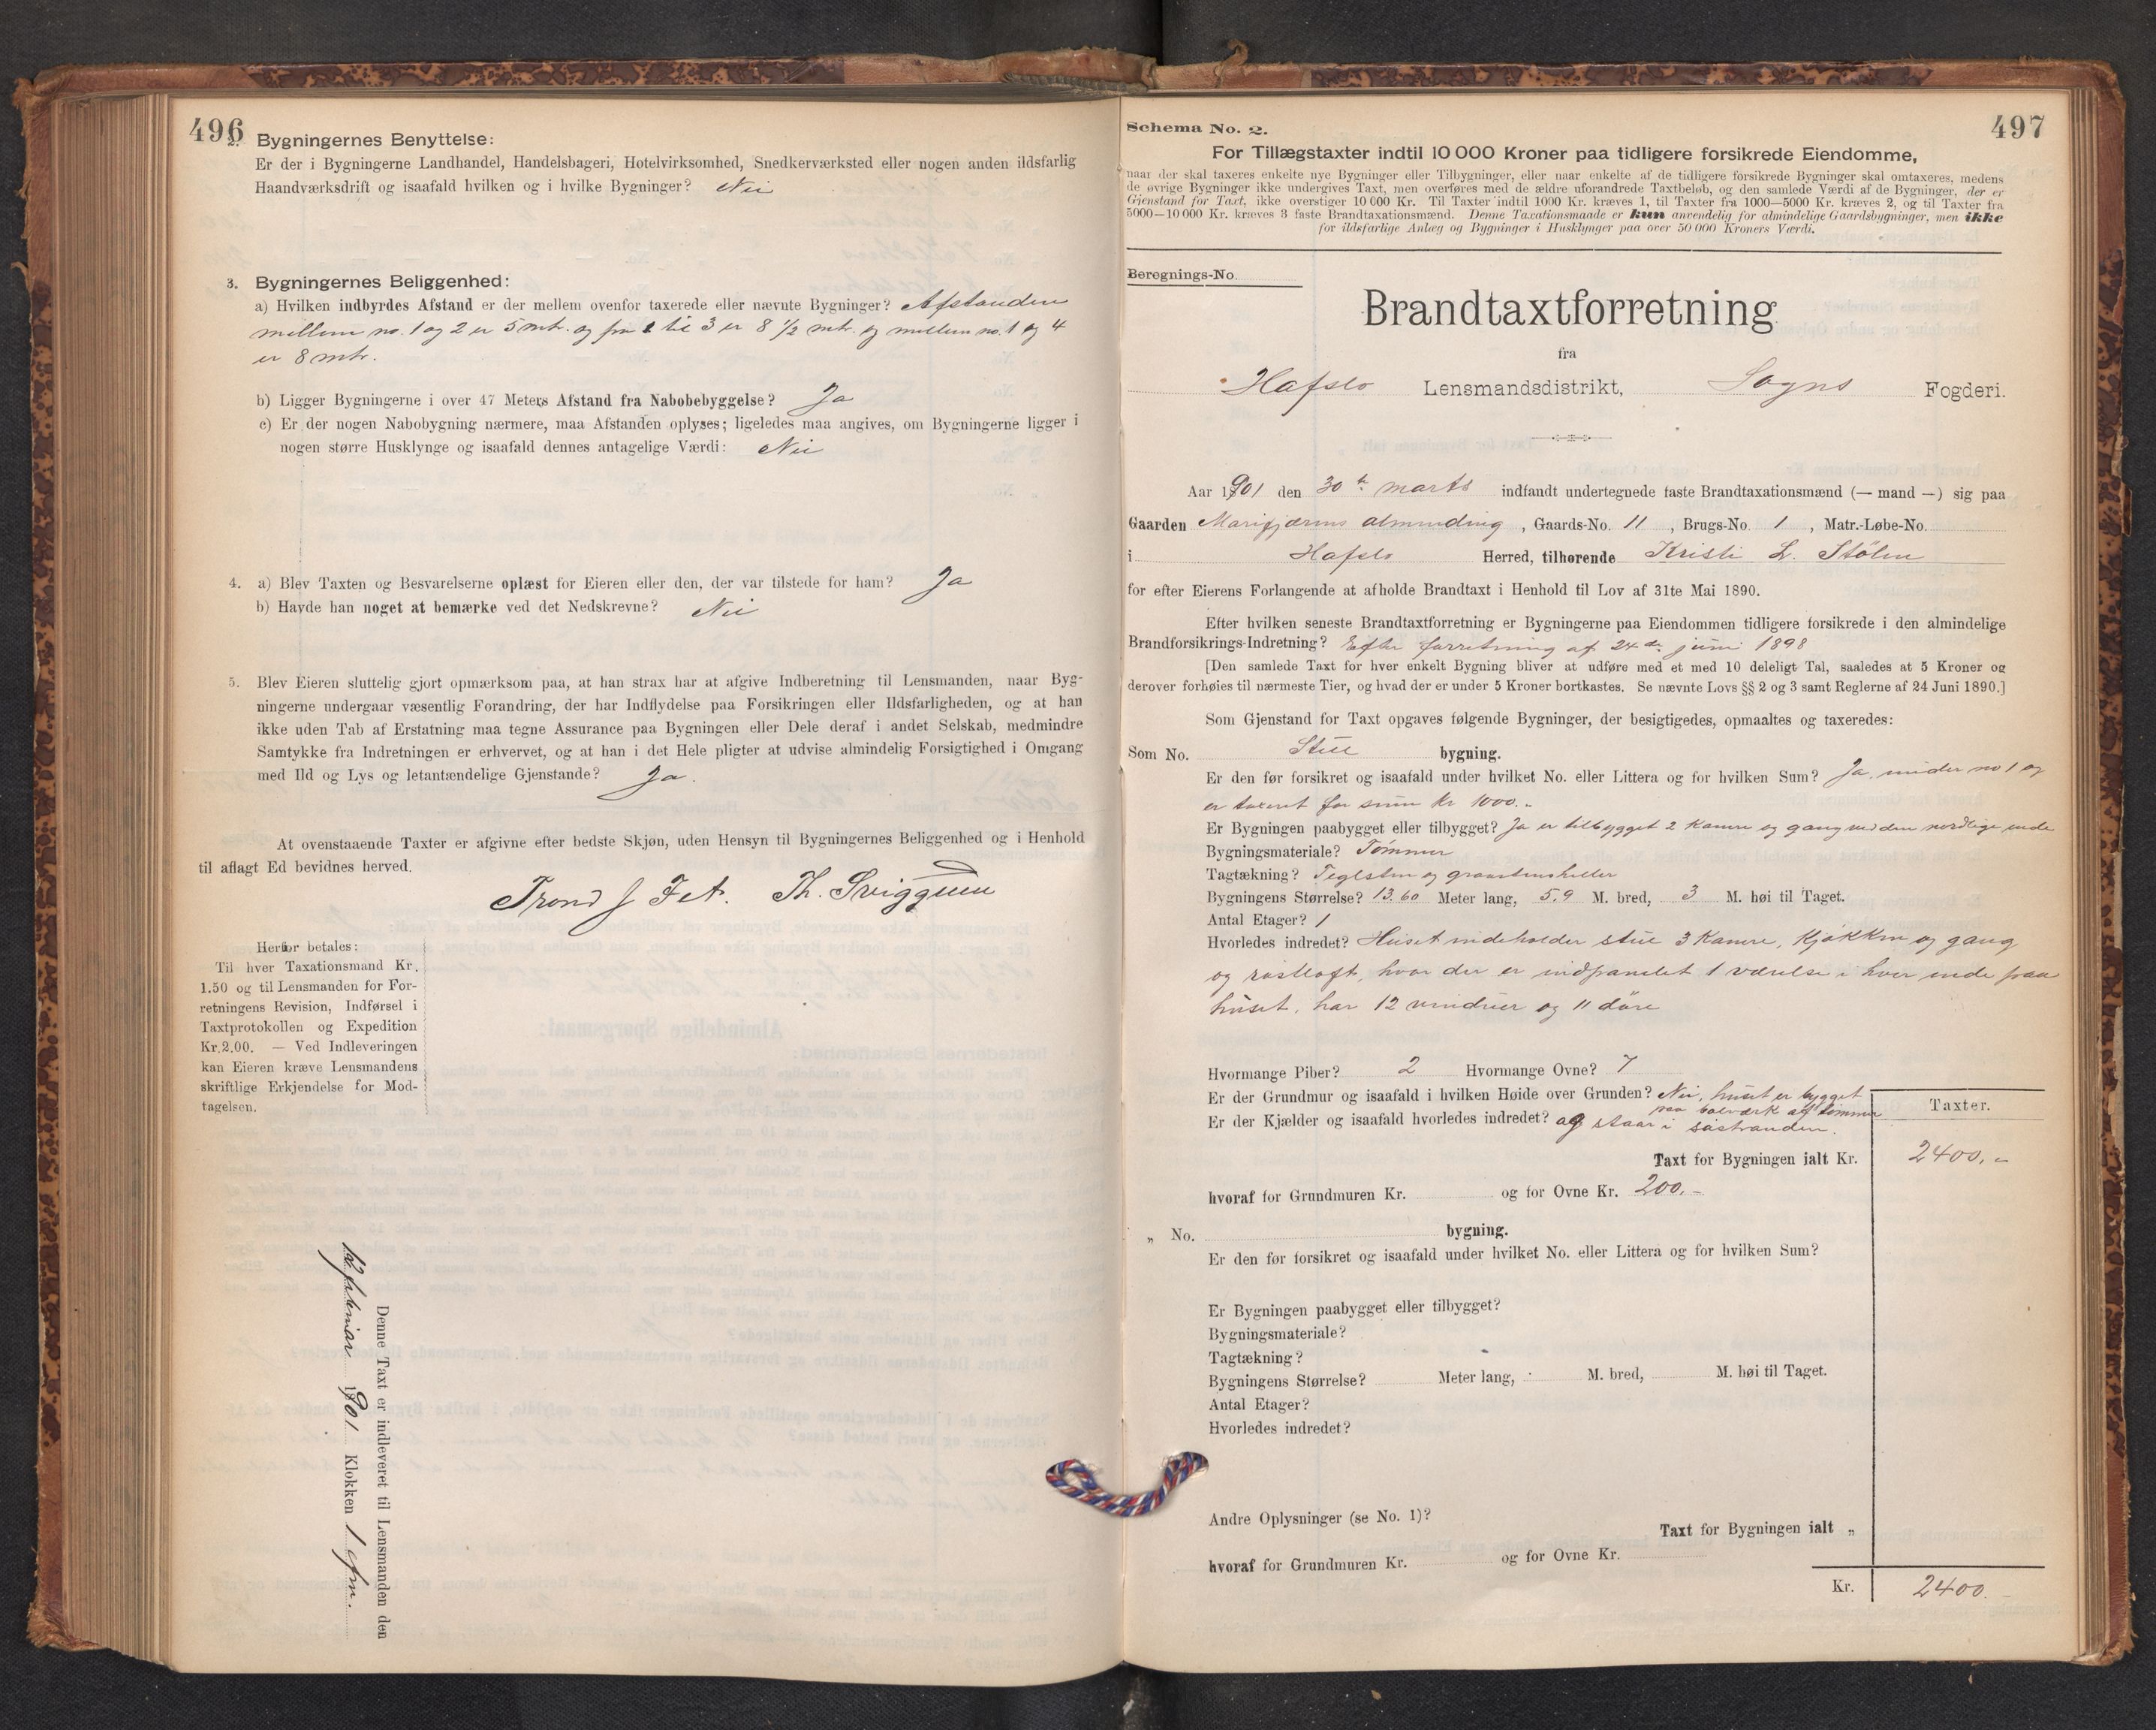 496
2. Bygningernes Benyttelse:
Er der i Bygningerne Landhandel, Handelsbageri, Hotelvirksomhed, Snedkerværksted eller nogen anden ildsfarlig
Haandværksdrift og isaafald hvilken og i hvilke Bygninger? Nei
3. Bygningernes Beliggenhed:
a) Hvilken indbyrdes Afstand er der mellem ovenfor taxerede eller nævnte Bygninger? Afstanden
mellem no. 1 og 2 er 5 mtr. og fra 2 til 3 er 8 1/2 mtr. og mellem no. 1 og 4
er 8 mtr.
b) Ligger Bygningerne i over 47 Meters Afstand fra Nabobebyggelse? Ja
c) Er der nogen Nabobygning nærmere, maa Afstanden oplyses; ligeledes maa angives, om Bygningerne ligger i
nogen større Husklynge og isaafald dennes antagelige Værdi: Nei
4. a) Blev Taxten og Besvarelserne oplæst for Eieren eller den, der var tilstede for ham? Ja
b) Havde han noget at bemærke ved det Nedskrevne? Nei
5. Blev Eieren sluttelig gjort opmærksom paa, at han strax har at afgive Indberetning til Lensmanden, naar Byg-
ningerne undergaar væsentlig Forandring, der har Indflydelse paa Forsikringen eller Ildsfarligheden, og at han
ikke uden Tab af Erstatning maa tegne Assurance paa Bygningen eller Dele deraf i andet Selskab, medmindre
Samtykke fra Indretningen er erhvervet, og at han i det Hele pligter at udvise almindelig Forsigtighed i Omgang
med Ild og Lys og letantændelige Gjenstande? Ja.
At ovenstaaende Taxter er afgivne efter bedste Skjøn, uden Hensyn til Bygningernes Beliggenhed og i Henhold
til aflagt Ed bevidnes herved.
Trond J Fet. Th. Sviggum
Herfor betales:
Til hver Taxationsmand Kr.
1.50 og til Lensmanden for For-
retningens Revision, Indførsel i
Taxtprotokollen og Expedition
Kr. 2.00. — Ved Indleveringen
kan Eieren kræve Lensmandens
skriftlige Erkjendelse for Mod-
tagelsen.
Denne Taxt er indleveret til Lensmanden den
1901 Klokken 1 efm.
497
Schema No. 2.
For Tillægstaxter indtil 10 000 Kroner paa tidligere forsikrede Eiendomme,
naar der skal taxeres enkelte nye Bygninger eller Tilbygninger, eller naar enkelte af de tidligere forsikrede Bygninger skal omtaxeres, medens
de øvrige Bygninger ikke undergives Taxt, men overføres med de ældre uforandrede Taxtbeløb, og den samlede Værdi af de Bygninger, der er
Gjenstand for Taxt, ikke overstiger 10 000 Kr. Til Taxter indtil 1000 Kr. kræves 1, til Taxter fra 1000—5000 Kr. kræves 2, og til Taxter fra
5000—10 000 Kr. kræves 3 faste Brandtaxationsmænd. Denne Taxationsmaade er kun anvendelig for almindelige Gaardsbygninger, men ikke
for ildsfarlige Anlæg og Bygninger i Husklynger paa over 50 000 Kroners Værdi.
Beregnings-No.
Brandtaxtforretning
fra
Hafslo Lensmandsdistrikt, Sogns Fogderi.
Aar 1901 den 30te marts indfandt undertegnede faste Brandtaxationsmænd (— mand —) sig paa
Gaarden Marifjærens almending, Gaards-No. 11, Brugs-No. 1, Matr.-Løbe-No.
i Hafslo Herred, tilhørende Kristi L. Stölen
for efter Eierens Forlangende at afholde Brandtaxt i Henhold til Lov af 31te Mai 1890.
Efter hvilken seneste Brandtaxtforretning er Bygningerne paa Eiendommen tidligere forsikrede i den almindelige
Brandforsikrings-Indretning? Efter forretning af 24de juni 1898
[Den samlede Taxt for hver enkelt Bygning bliver at udføre med et med 10 deleligt Tal, saaledes at 5 Kroner og
derover forhøies til nærmeste Tier, og hvad der er under 5 Kroner bortkastes. Se nævnte Lovs §§ 2 og 3 samt Reglerne af 24 Juni 1890.]
Som Gjenstand for Taxt opgaves følgende Bygninger, der besigtigedes, opmaaltes og taxeredes:
Som No. Stue bygning.
Er den før forsikret og isaafald under hvilket No. eller Littera og for hvilken Sum? Ja, under no 1 og
er taxeret for sum Kr 1000.-
Er Bygningen paabygget eller tilbygget? Ja er tilbygget 2 Kamre og gang ved den nordlige ende
Bygningsmateriale? Tömmer
Tagtækning? Teglsten og graastensheller
Bygningens Størrelse? 13.60 Meter lang, 5,9 M. bred, 3 M. høi til Taget.
Antal Etager? 1
Hvorledes indredet? Huset indeholder stue 3 Kamre, Kjökken og gang
og röstloft, hvor der er indpanelet 1 værelse i hver ende paa
huset, har 12 vinduer og 11 döre
Hvormange Piber? 2 Hvormange Ovne? 7
Er der Grundmur og isaafald i hvilken Høide over Grunden? Nei, huset er bygget
paa bolværk af tömmer
Er der Kjælder og isaafald hvorledes indredet? og staar i söstranden.
Taxter.
Taxt for Bygningen ialt Kr. 2400.-
hvoraf for Grundmuren Kr. og for Ovne Kr. 200.-
„ No. bygning.
Er den før forsikret og isaafald under hvilket No. eller Littera og for hvilken Sum?
Er Bygningen paabygget eller tilbygget?
Bygningsmateriale?
Tagtækning?
Bygningens Størrelse? Meter lang, M. bred, M. høi til Taget.
Antal Etager?
Hvorledes indredet?
Andre Oplysninger (se No. 1)?
Taxt for Bygningen ialt „
hvoraf for Grundmuren Kr. og for Ovne Kr.
Kr. 2400.-